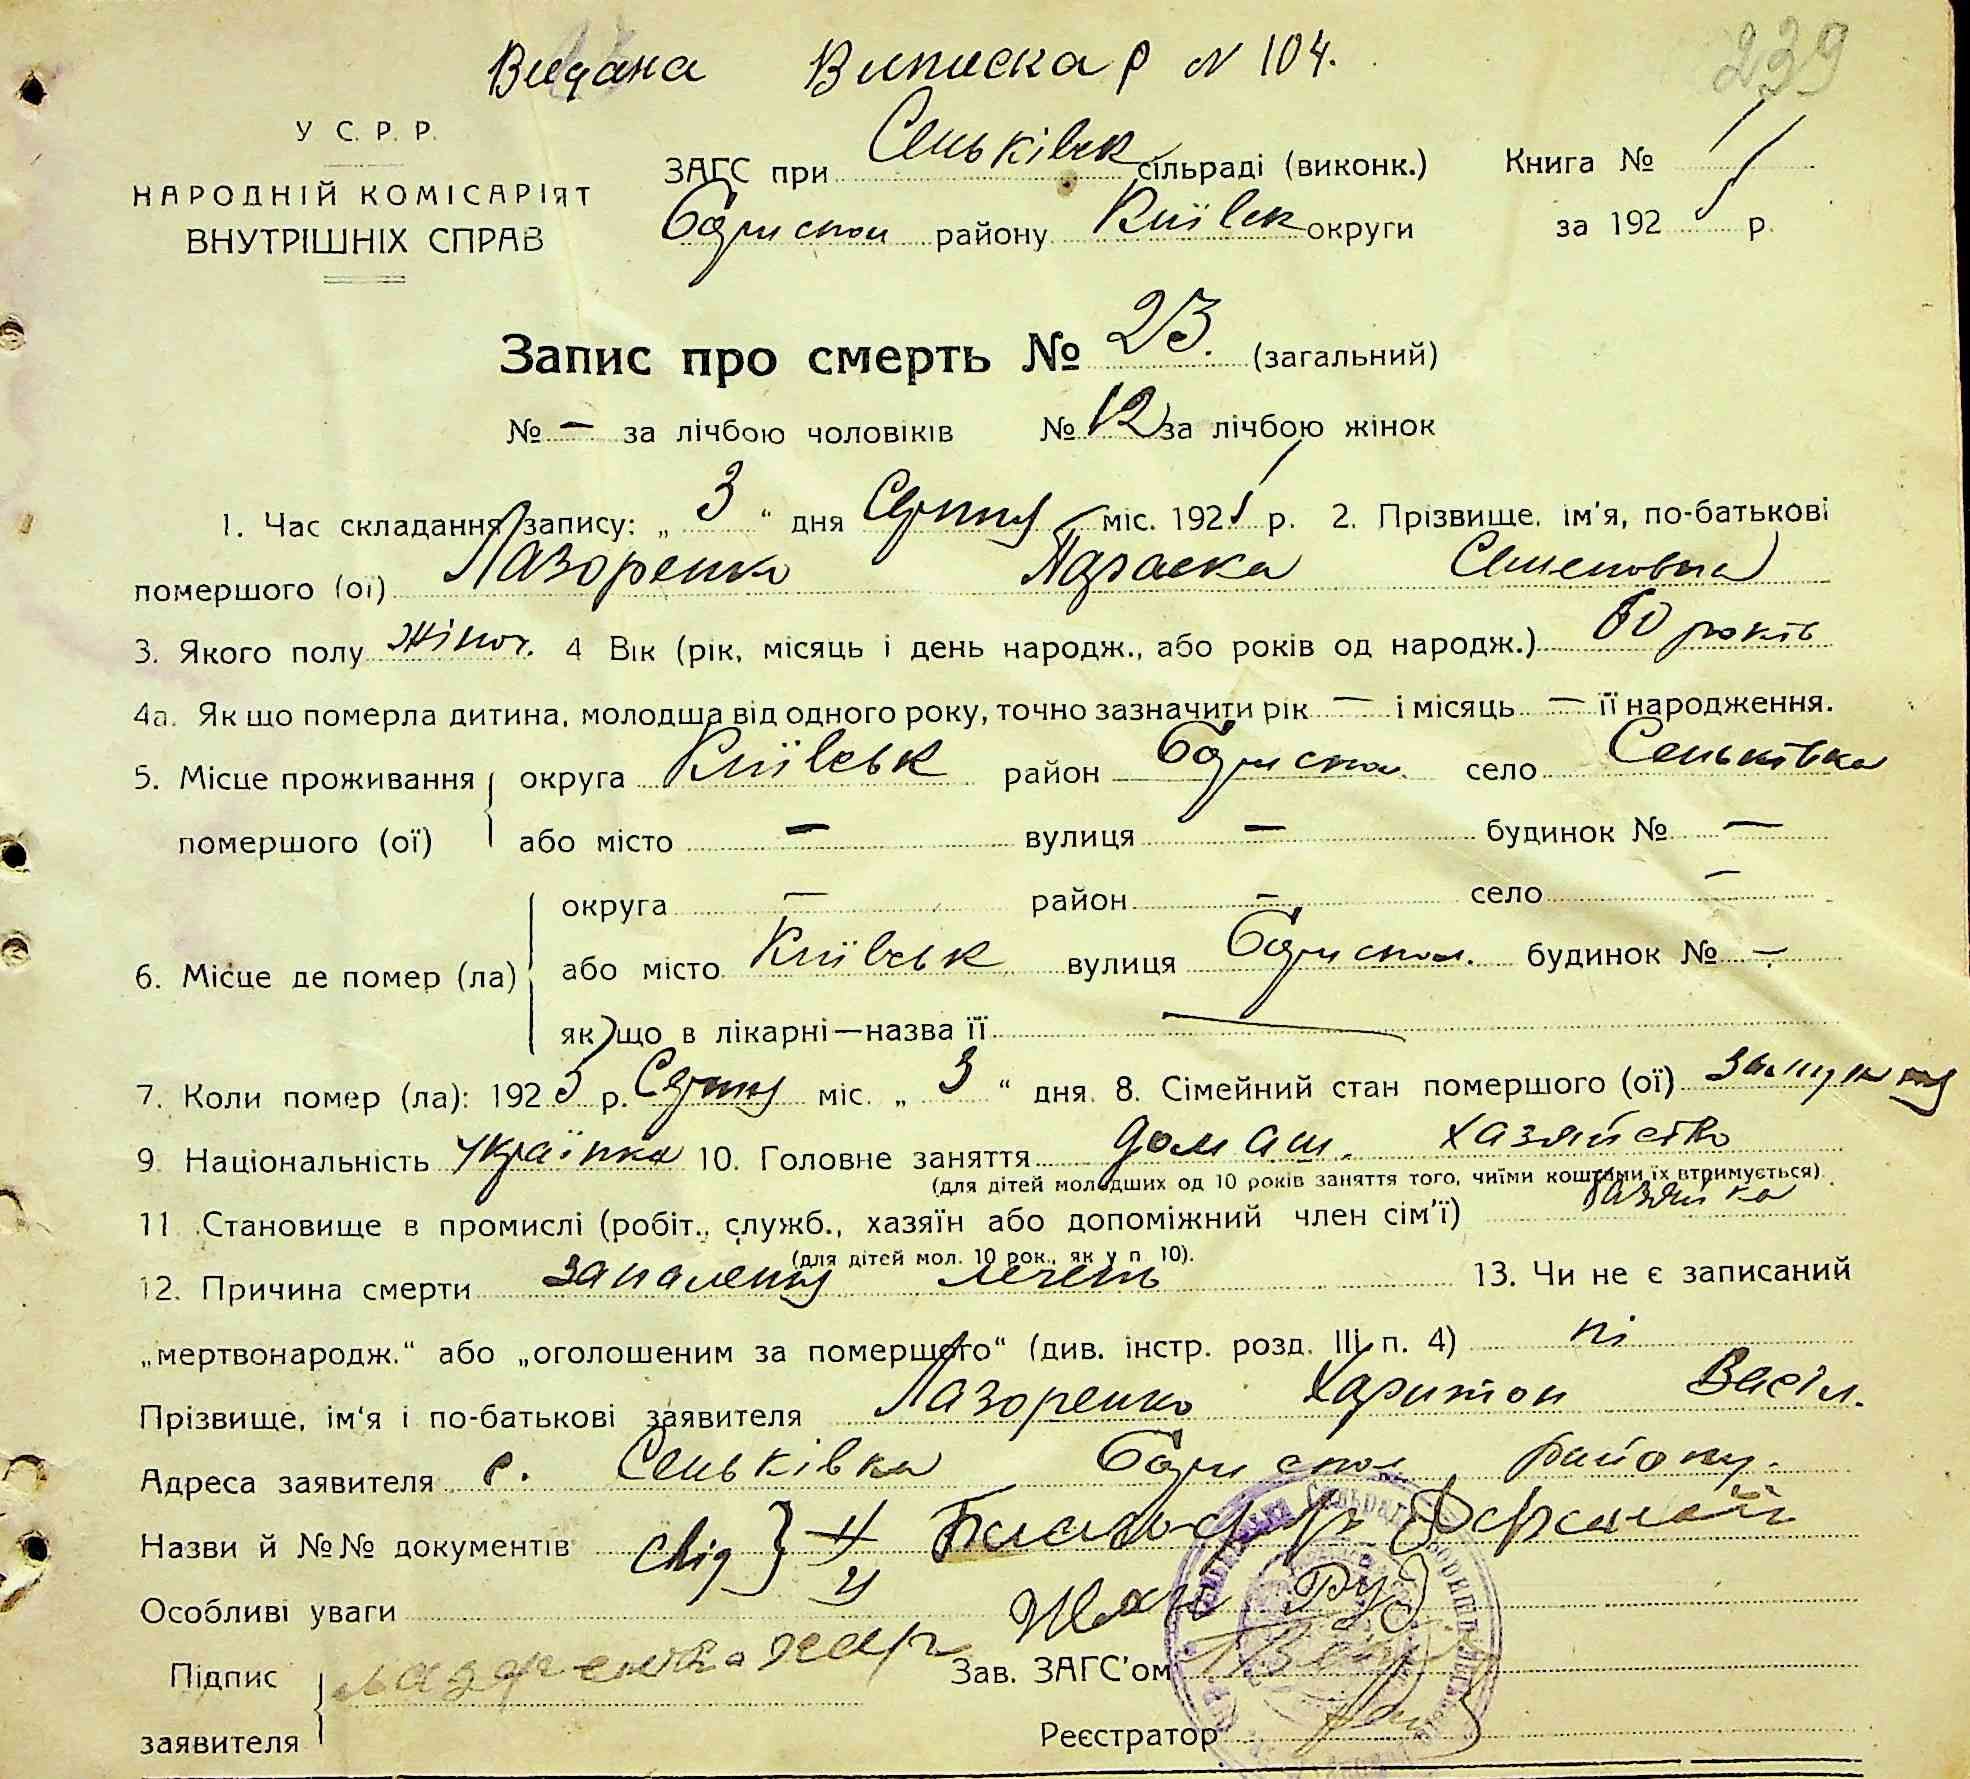 Видана Виписка р N 104.
239
У С. Р. Р.
НАРОДНІЙ КОМІСАРІЯТ
ВНУТРІШНІХ СПРАВ
ЗАГС при Сеньківськ сільраді (виконк.) Книга №
Бориспол району Київськ округи за 192 5 р.
Запис про смерть № 23. (загальний)
№ — за лічбою чоловіків № 12 за лічбою жінок
1. Час складання запису: „ 3 “ дня Серпня міс. 192 5 р. 2. Прізвище, ім'я, по-батькові
помершого (ої) Лазоренко Параска Семеновна
3. Якого полу жіноч. 4 Вік (рік, місяць і день народж., або років од народж.) 60 років
4а. Як що померла дитина, молодша від одного року, точно зазначити рік — і місяць — її народження.
5. Місце проживання помершого (ої) округа Київськ район Бориспол. село Сеньківка
або місто — вулиця — будинок № —
6. Місце де помер (ла) округа — район — село —
або місто Київськ вулиця Бориспол. будинок № —
як що в лікарні—назва її —
7. Коли помер (ла): 192 5 р. Серпня міс. „ 3 “ дня. 8. Сімейний стан помершого (ої) замужня
9 Національність українка 10. Головне заняття домаш. хазяйство
(для дітей молодших од 10 років заняття того, чиїми коштами їх втримується).
11 Становище в промислі (робіт., служб., хазяїн або допоміжний член сім'ї) хазяйка
(для дітей мол. 10 рок., як у п 10).
12. Причина смерти запалення легень 13. Чи не є записаний
„мертвонародж.“ або „оголошеним за помершого“ (див. інстр. розд. III п. 4) ні
Прізвище, ім'я і по-батькові заявителя Лазоренко Харитон Васіл.
Адреса заявителя с. Сеньківка Бориспол району.
Назви й №№ документів свід
Особливі уваги
Підпис заявителя лазоренко хар
Зав. ЗАГС'ом
Реєстратор